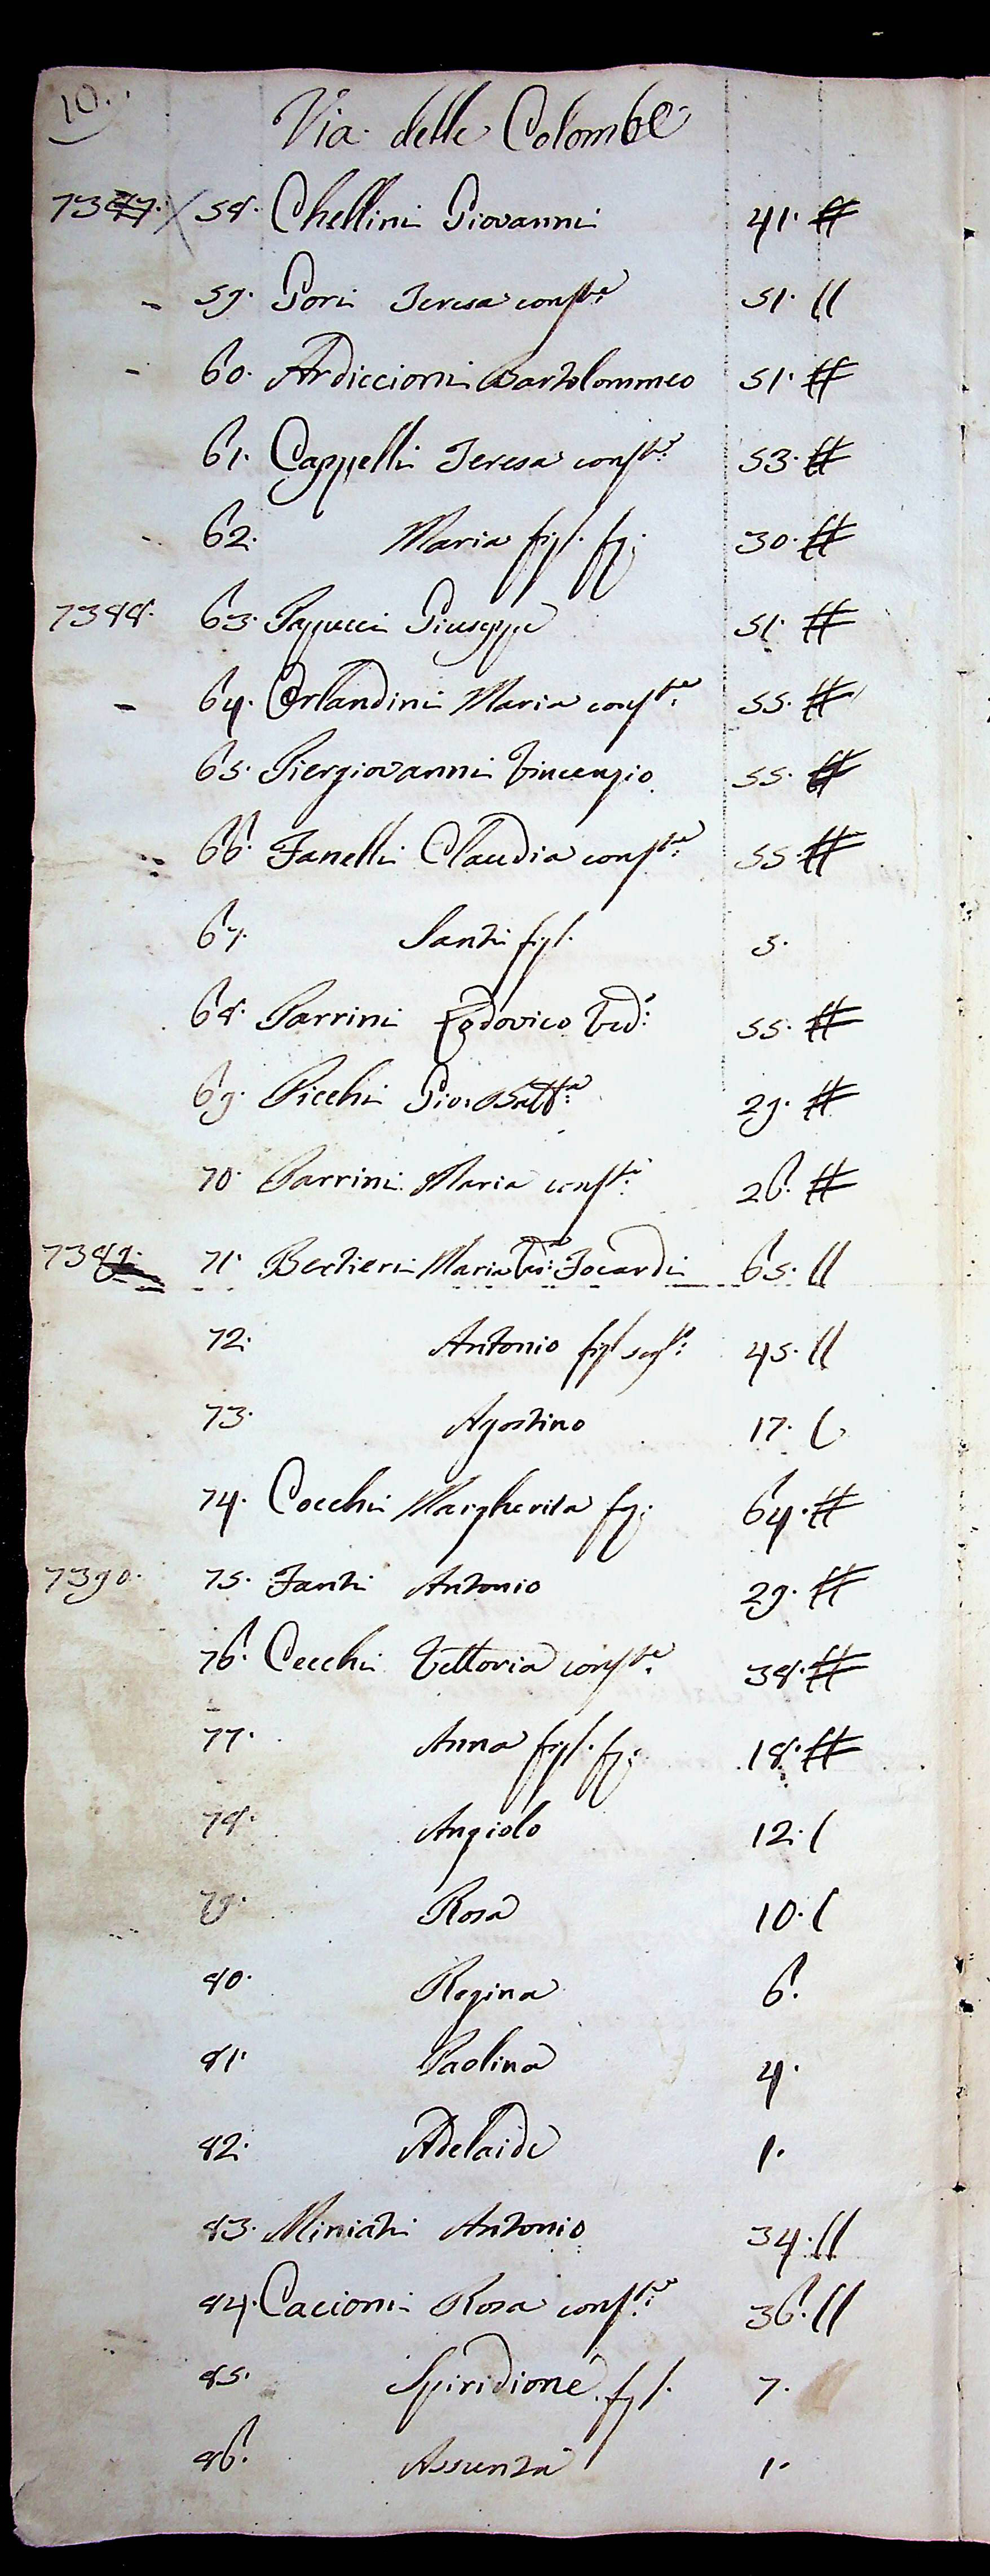 10.
Via delle Colombe
7387. 58. Chellini Giovanni 41. #
59. Gori Teresa conste: 51. //
60. Ardiccioni Bartolommeo 51. #
61. Cappelli Teresa conste: 53. #
62. Maria figl. fg: 30. #
7388. 63. Papucci Giuseppe 51. #
64. Orlandini Maria conste: 55. #
65. Piergiovanni Vincenzio 55. #
66. Fanelli Claudia conste: 55. #
67. Santi figl. 5.
68. Parrini Lodovico Ved: 55. #
69. Picchi Gio: Batta: 29. #
70. Parrini Maria conste: 26. #
7389. 71. Bertieri Maria Va: Focardi 65. //
72. Antonio figl 45. //
73. Agostino 17. (
74. Cocchi Margherita fg: 64. #
7390. 75. Fanti Antonio 29. #
76. Cecchi Vettoria conste: 38. #
77. Anna figl. fg: 18. #
78. Angiolo 12. (
79. Rosa 10. (
80. Regina 6.
81. Paolina 4.
82. Adelaide 1.
83. Miniati Antonio 34. //
84. Cacioni Rosa conste: 36. //
85. Spiridione figl. 7.
86. Assunta 1.